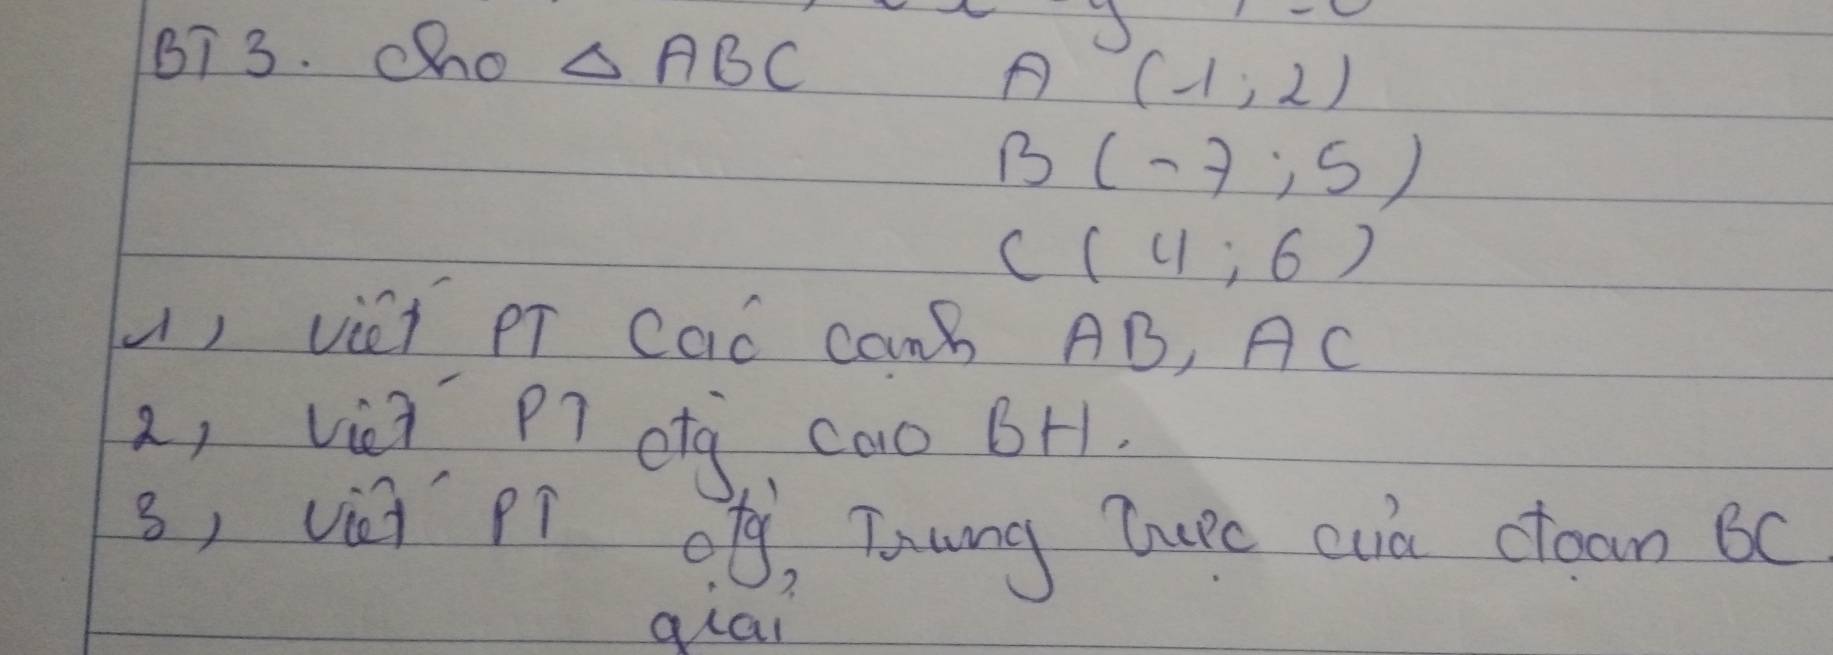 BT 3. Cho △ ABC A (1; 2)
B (-7; 5)
C ( 4; 6 )
1, Viết PT các cạnh AB, AC
2, Viết PT đtg cao BH.
3, Viết PT đtg Trung Trực của đoạn BC.
giải